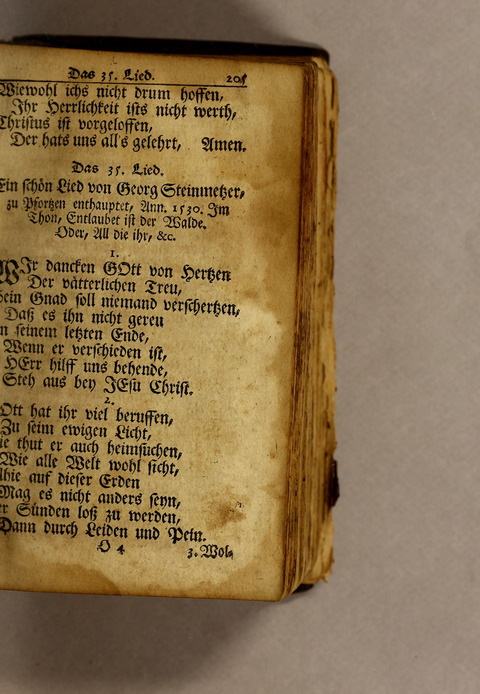 Das 35. Lied. 205
Wiewohl ichs nicht drum hoffen,
Ihr Herrlichkeit ists nicht werth,
Christus ist vorgeloffen,
Der hats uns all's gelehrt, Amen.
Das 35. Lied.
Ein schön Lied von Georg Steinmetzer,
zu Pfortzen enthauptet, Ann. 1530. Im
Thon, Entlaubet ist der Walde.
Oder, All die ihr, &c.
1.
WIr dancken GOtt von Hertzen
Der vätterlichen Treu,
Sein Gnad soll niemand verschertzen,
Daß es ihn nicht gereu
in seinem letzten Ende,
Wenn er verschieden ist,
HErr hilff uns behende,
Steh aus bey JEsu Christ.
2.
Ott hat ihr viel beruffen,
Zu seim ewigen Licht,
ie thut er auch heimsuchen,
Wie alle Welt wohl sicht,
lhie auf dieser Erden
Mag es nicht anders seyn,
er Sünden loß zu werden,
Dann durch Leiden und Pein.
O 4 3. Wol-